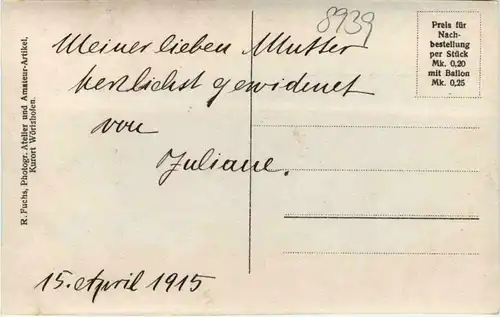 8939
Preis für
Nach-
bestellung
per Stück
Mk. 0,20
mit Ballon
Mk. 0,25
Meiner lieben Mutter
herzlichst gewidmet
von
Juliane.
15. April 1915
R. Fuchs, Photogr. Atelier und Amateur-Artikel.
Kurort Wörishofen.